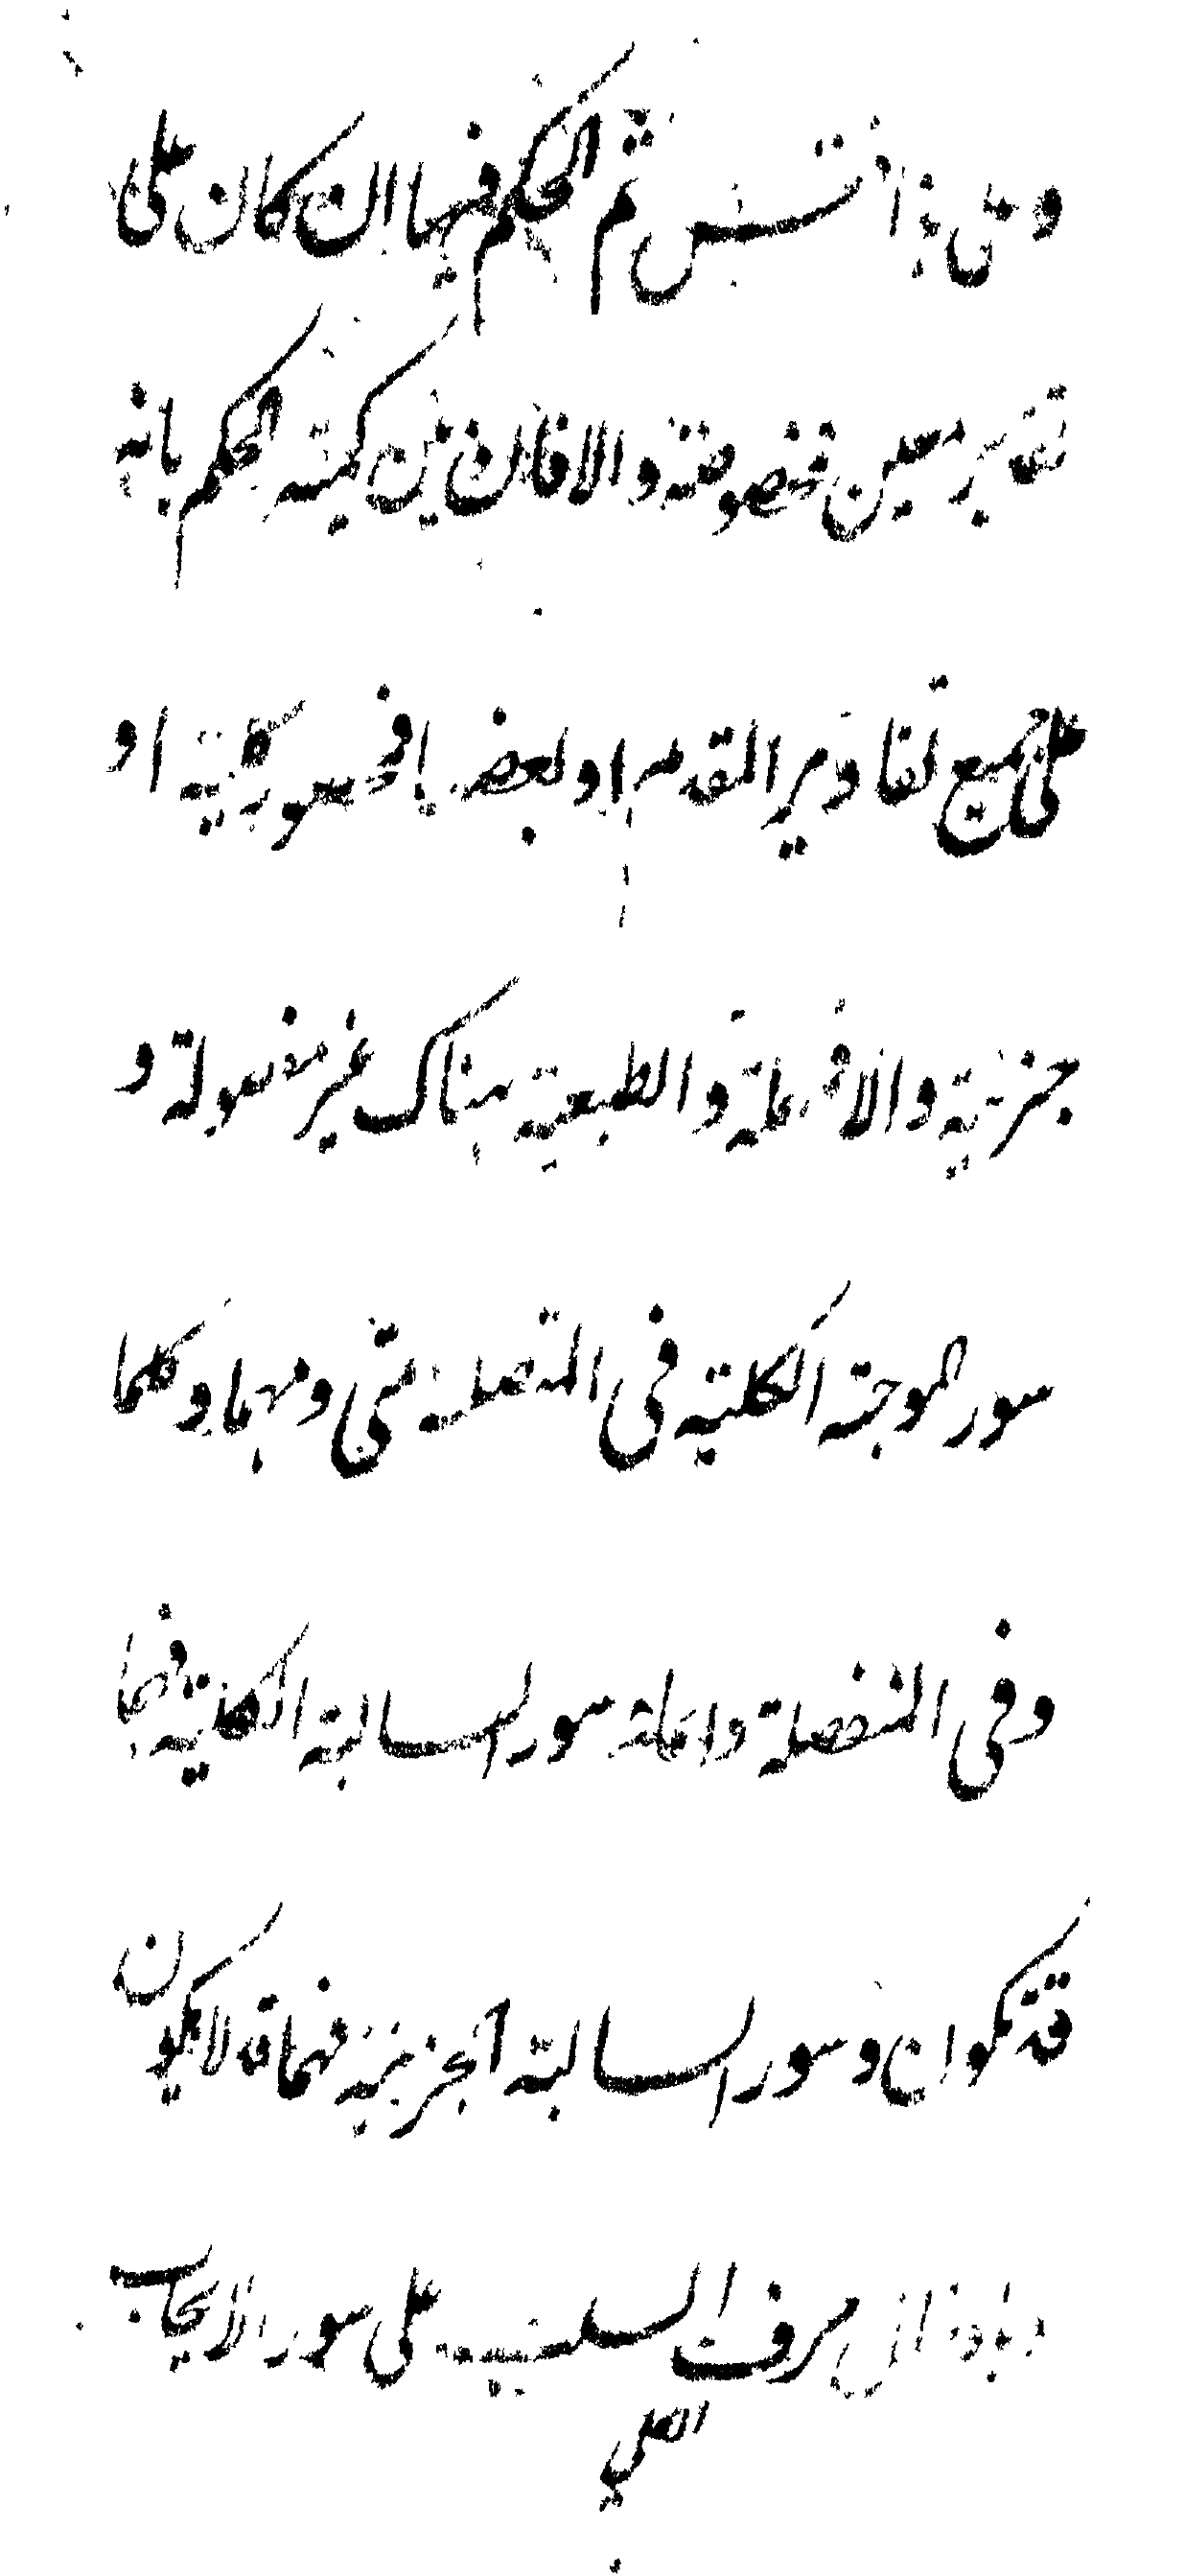 وعلى هذا فقس ثم الحكم فيها ان كان على
تقدير معين فمخصوصة والا فان بين كمية الحكم بانه
على جميع تقادير المقدم او بعضها فمحصورة كلية او
جزئية والا فمهملة والطبعية هناك غير معقولة و
سور الموجبة الكلية فى المتصلة متى ومهما وكلما
وفى المنفصلة دائما وسور السالبة الكلية فيهما
قد يكون وسور السالبة الجزئية فيهما قد لا يكون
وبادخال حرف السلب على سور الايجاب
الكلي